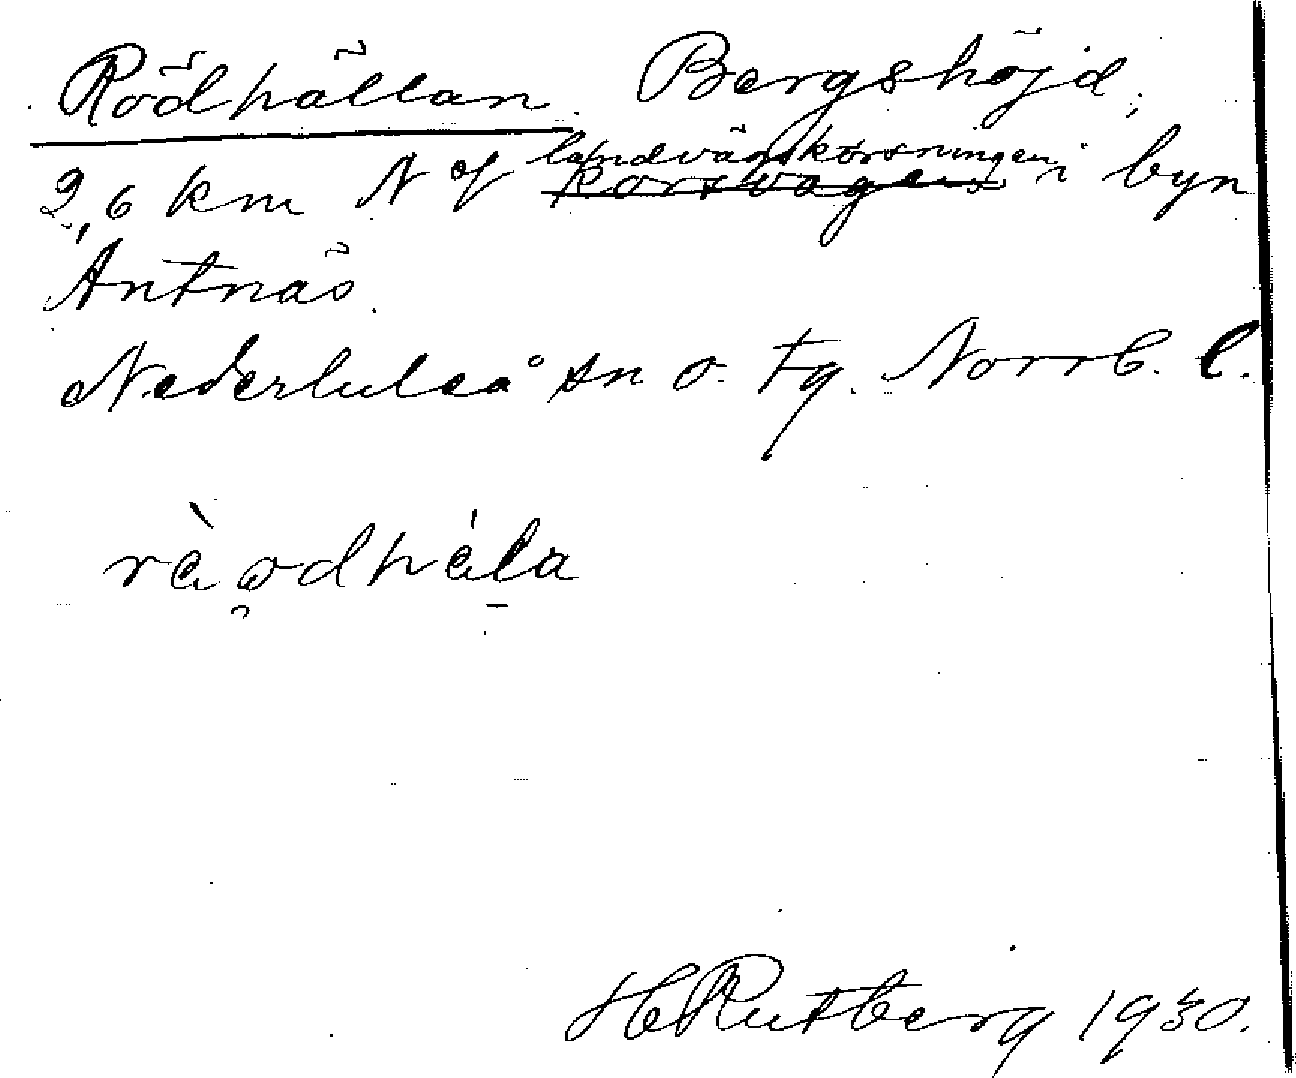 Rödhällan Bergshöjd,
2,6 km N of landvägskorsningen i byn
Antnäs.
Nederluleå sn o. tg. Norrb. l.
rὰo̭dhάla
HRutberg 1930.